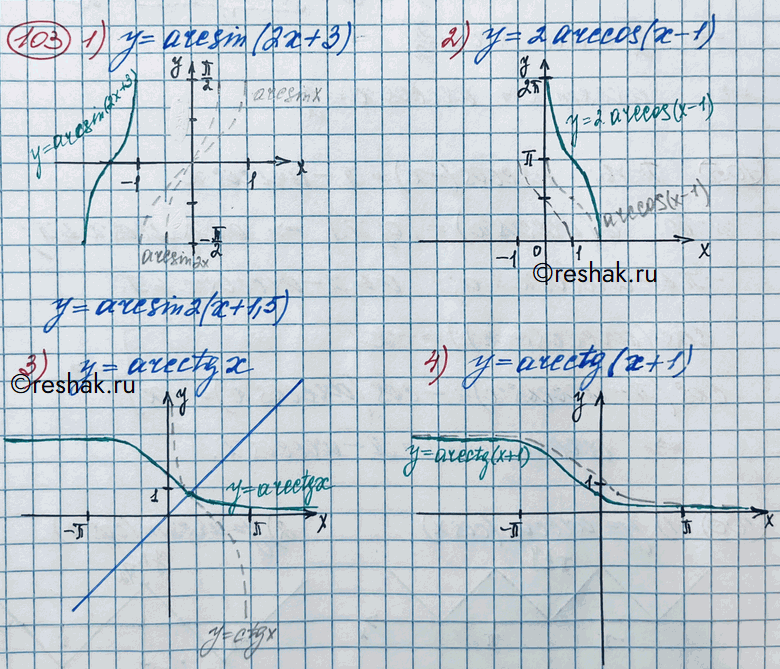 103 1) y = arcsin(2x+3)
y
π/2
arcsin x
y=arcsin(2x+3)
-1
1
x
arcsin2x
-π/2
2) y = 2 arccos(x-1)
y
2π
y=2 arccos(x-1)
π
arccos(x-1)
-1
0
1
x
©reshak.ru
y = arcsin2(x+1,5)
3) y = arcctg x
©reshak.ru
y
1
y=arcctgx
-π
π
x
y=ctgx
4) y = arcctg(x+1)
y
y=arcctg(x+1)
1
-π
π
x